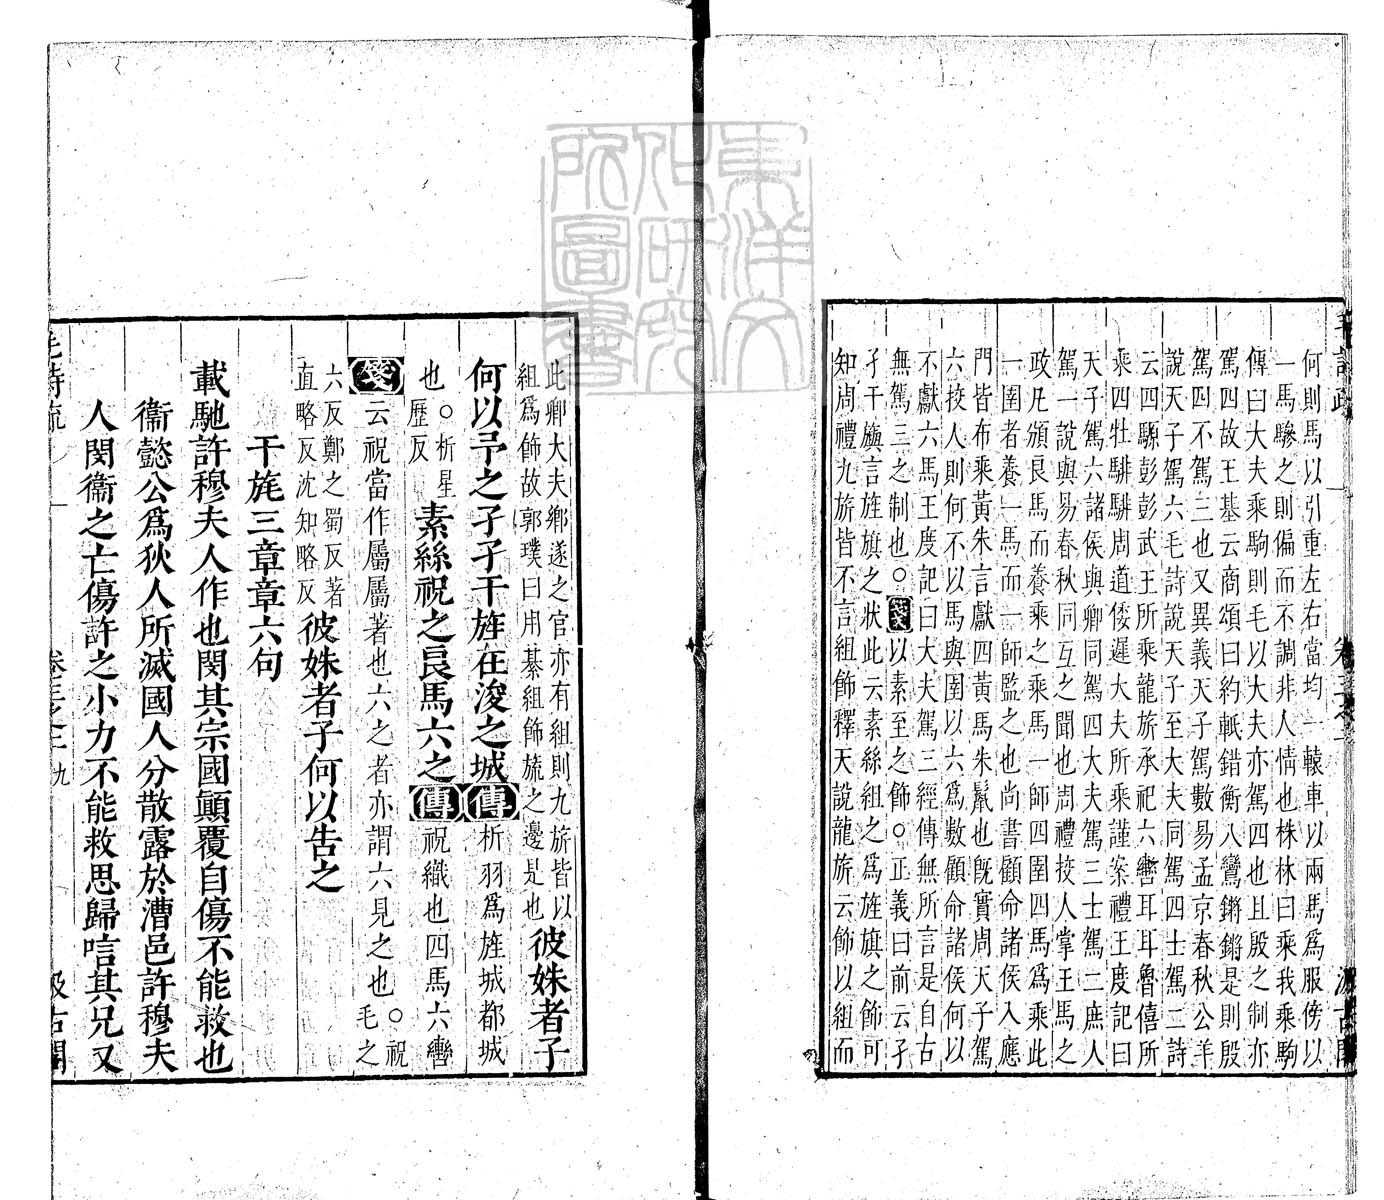 何則馬以引重左右當均一轅車以兩馬爲服傍以
一馬驂之則偏而不調非人情也株林曰乘我乘駒
傳曰大夫乘駒則毛以大夫亦駕四也且殷之制亦
駕四故王基云商頌曰約軧錯衡八鸞鏘鏘是則殷
駕四不駕三也又異義天子駕數易孟京春秋公羊
說天子駕六毛詩說天子至大夫同駕四士駕二詩
云四騵彭彭武王所乘龍旂承祀六轡耳耳魯僖所
乘四牡騑騑周道倭遲大夫所乘謹案禮王度記曰
天子駕六諸侯與卿同駕四大夫駕三士駕二庶人
駕一說與易春秋同互之聞也周禮挍人掌王馬之
政凡頒良馬而養乘之乘馬一師四圉四馬爲乘此
一圉者養一馬而一師監之也尚書顧命諸侯入應
門皆布乘黃朱言獻四黃馬朱鬣也旣實周天子駕
六挍人則何不以馬與圉以六爲數顧命諸侯何以
不獻六馬王度記曰大夫駕三經傳無所言是自古
無駕三之制也○箋以素至之飾○正義曰前云孑
孑干旟言旌旗之狀此云素絲組之爲旌旗之飾可
知周禮九旂皆不言組飾釋天說龍旂云飾以組而
此卿大夫鄉遂之官亦有組則九旂皆以
組爲飾故郭璞曰用綦組飾旒之邊是也
彼姝者子
何以予之孑孑干旌在浚之城傳析羽爲旌城都城
也○析星
歷反
素絲祝之良馬六之傳祝織也四馬六轡
箋云祝當作屬屬著也六之者亦謂六見之也○祝毛之
六反鄭之蜀反著
直略反沈知略反
彼姝者子何以告之
干旄三章章六句
載馳許穆夫人作也閔其宗國顚覆自傷不能救也
衞懿公爲狄人所滅國人分散露於漕邑許穆夫
人閔衞之亡傷許之小力不能救思歸唁其兄又
毛詩疏
卷三之二
九
汲古閣
東洋文
化研究
所圖書